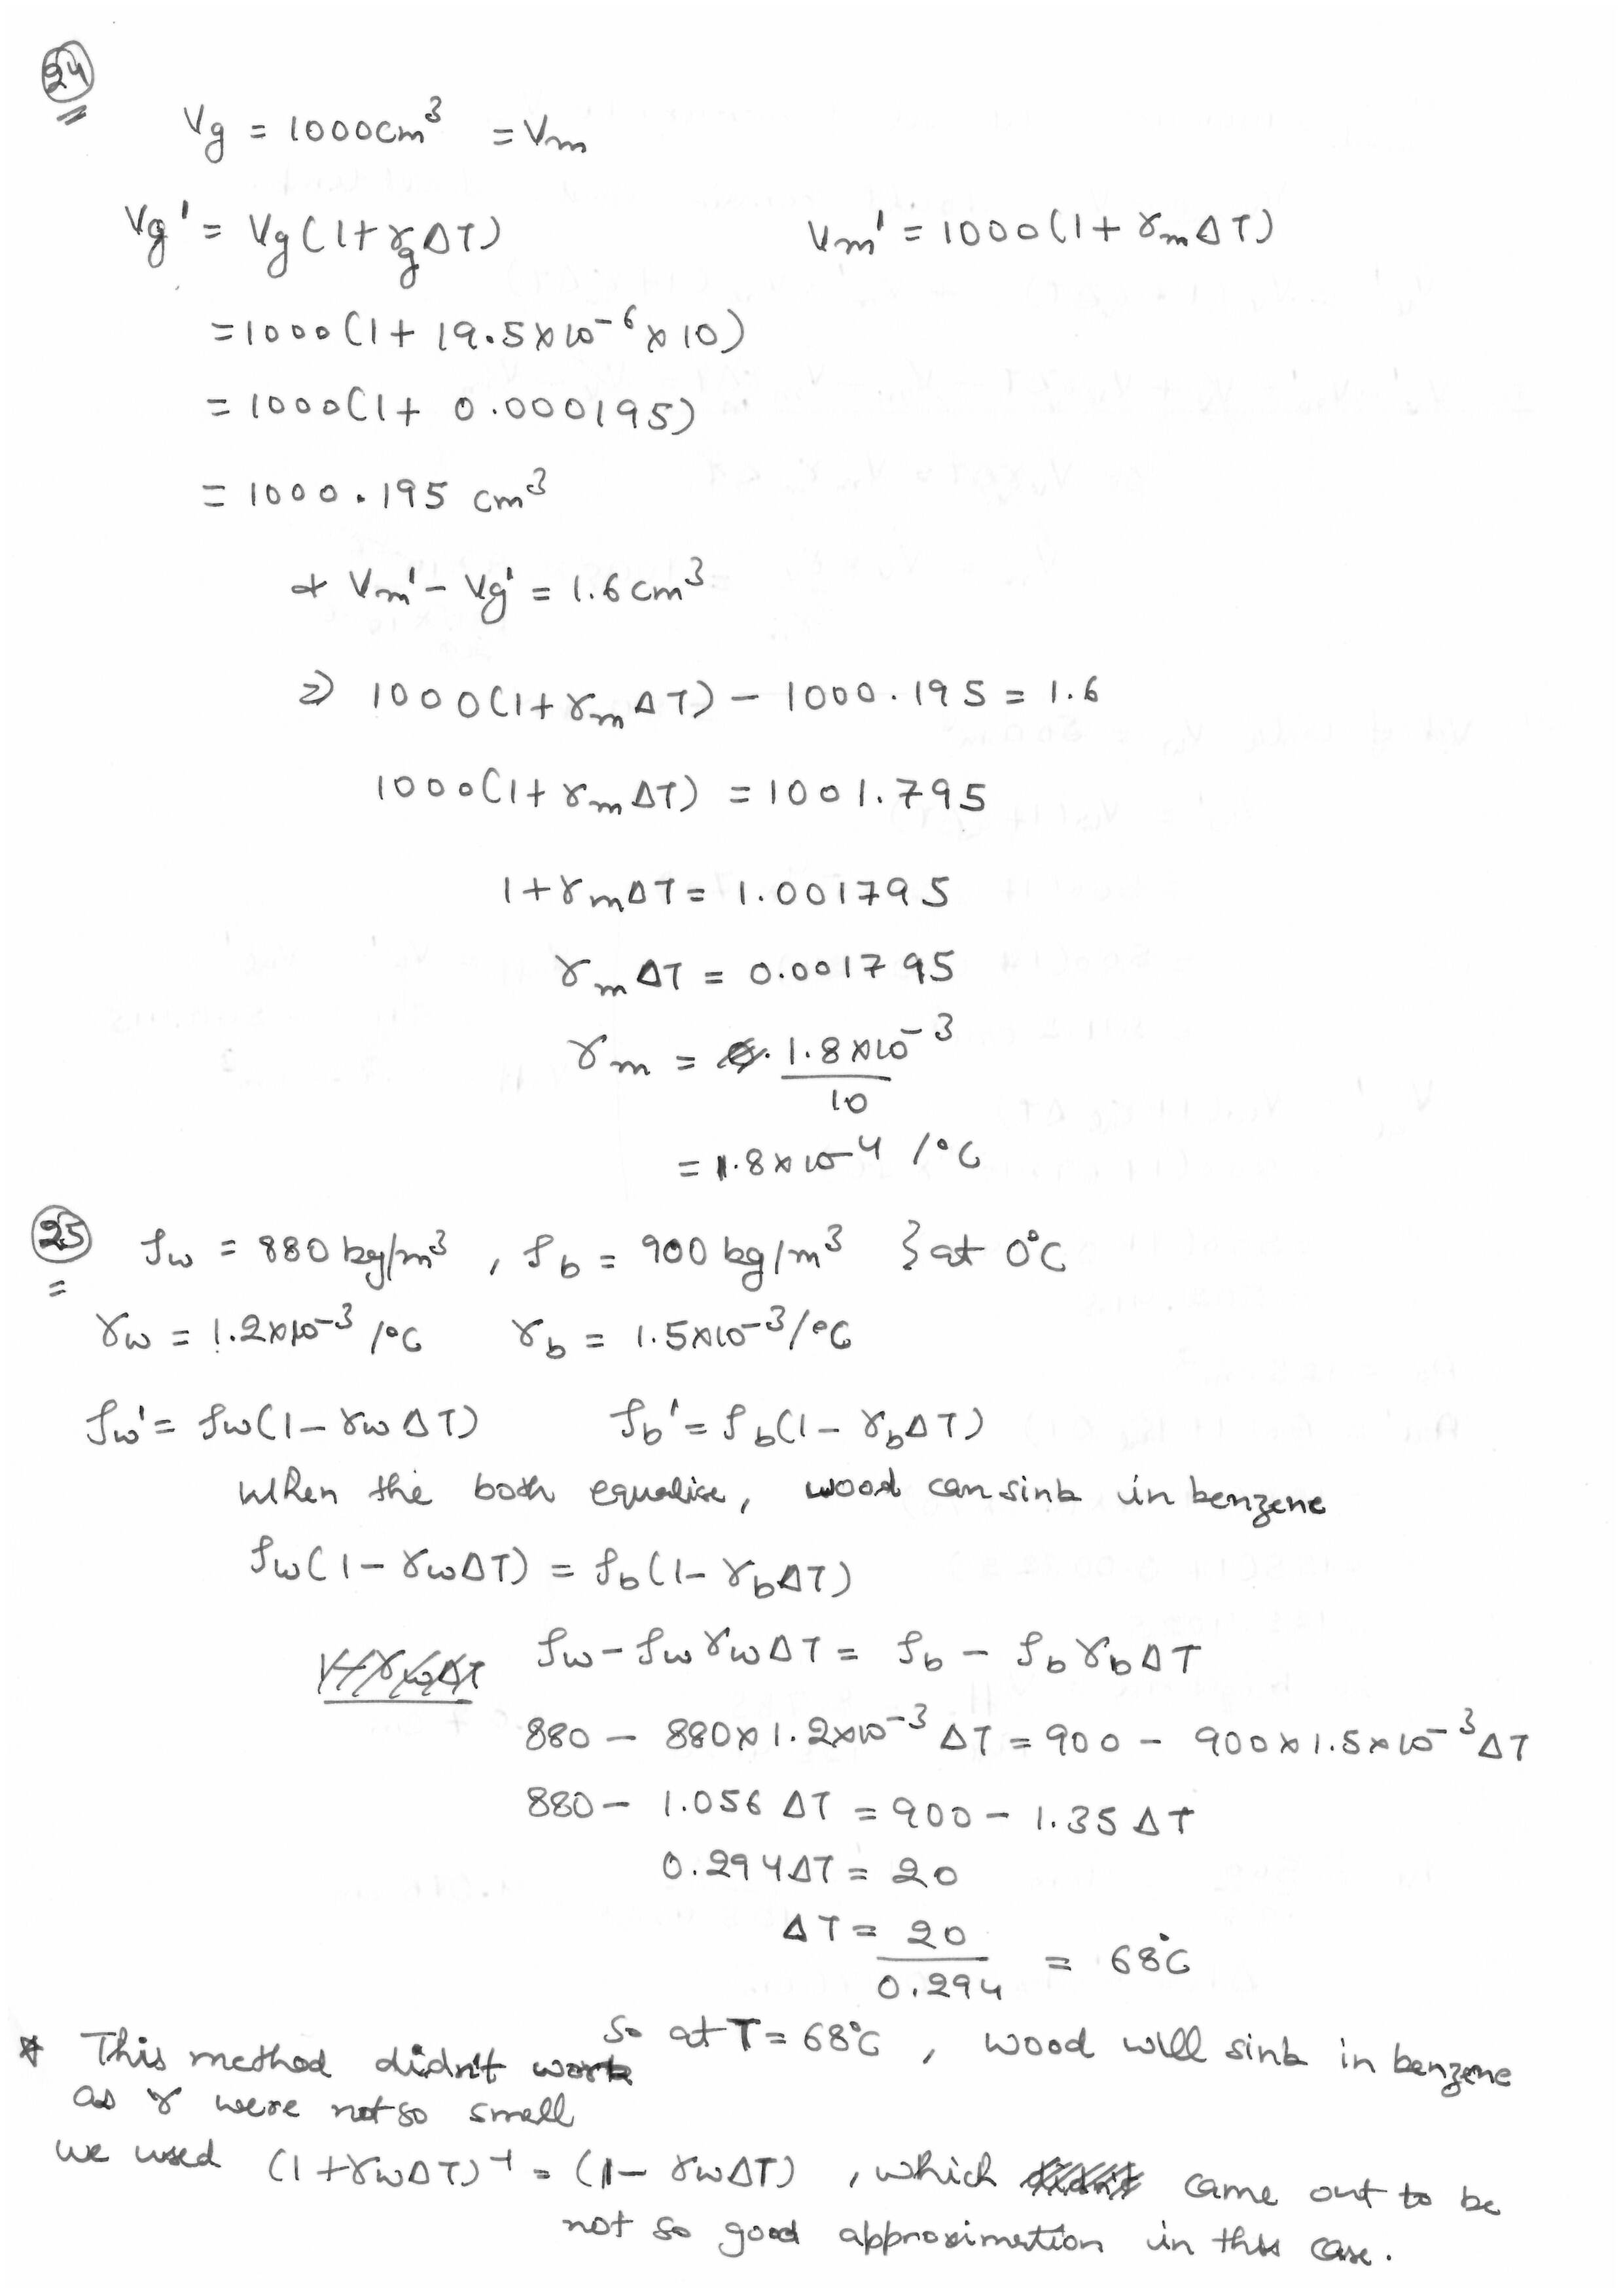 24
Vg = 1000cm³ = Vm
Vg' = Vg(1+γgΔT) Vm' = 1000(1+γmΔT)
=1000(1+ 19.5×10⁻⁶×10)
= 1000(1+ 0.000195)
= 1000.195 cm³
& Vm' - Vg' = 1.6cm³
⇒ 1000(1+γmΔT) - 1000.195 = 1.6
1000(1+γmΔT) = 1001.795
1+γmΔT = 1.001795
γmΔT = 0.001795
γm = 1.8×10⁻³/10
= 1.8×10⁻⁴ /°C
25 ρw = 880 kg/m³, ρb = 900 kg/m³ } at 0°C
γw = 1.2×10⁻³ /°C γb = 1.5×10⁻³/°C
ρw' = ρw(1-γwΔT) ρb' = ρb(1-γbΔT)
When the both equalise, wood can sink in benzene
ρw(1-γwΔT) = ρb(1-γbΔT)
ρw - ρwγwΔT = ρb - ρbγbΔT
880 - 880×1.2×10⁻³ΔT = 900 - 900×1.5×10⁻³ΔT
880 - 1.056 ΔT = 900 - 1.35 ΔT
0.294ΔT = 20
ΔT = 20/0.294 = 68°C
So at T = 68°C, wood will sink in benzene
* This method didn't work
as γ were not so small
we used (1+γwΔT)⁻¹ = (1-γwΔT), which came out to be
not so good approximation in this case.